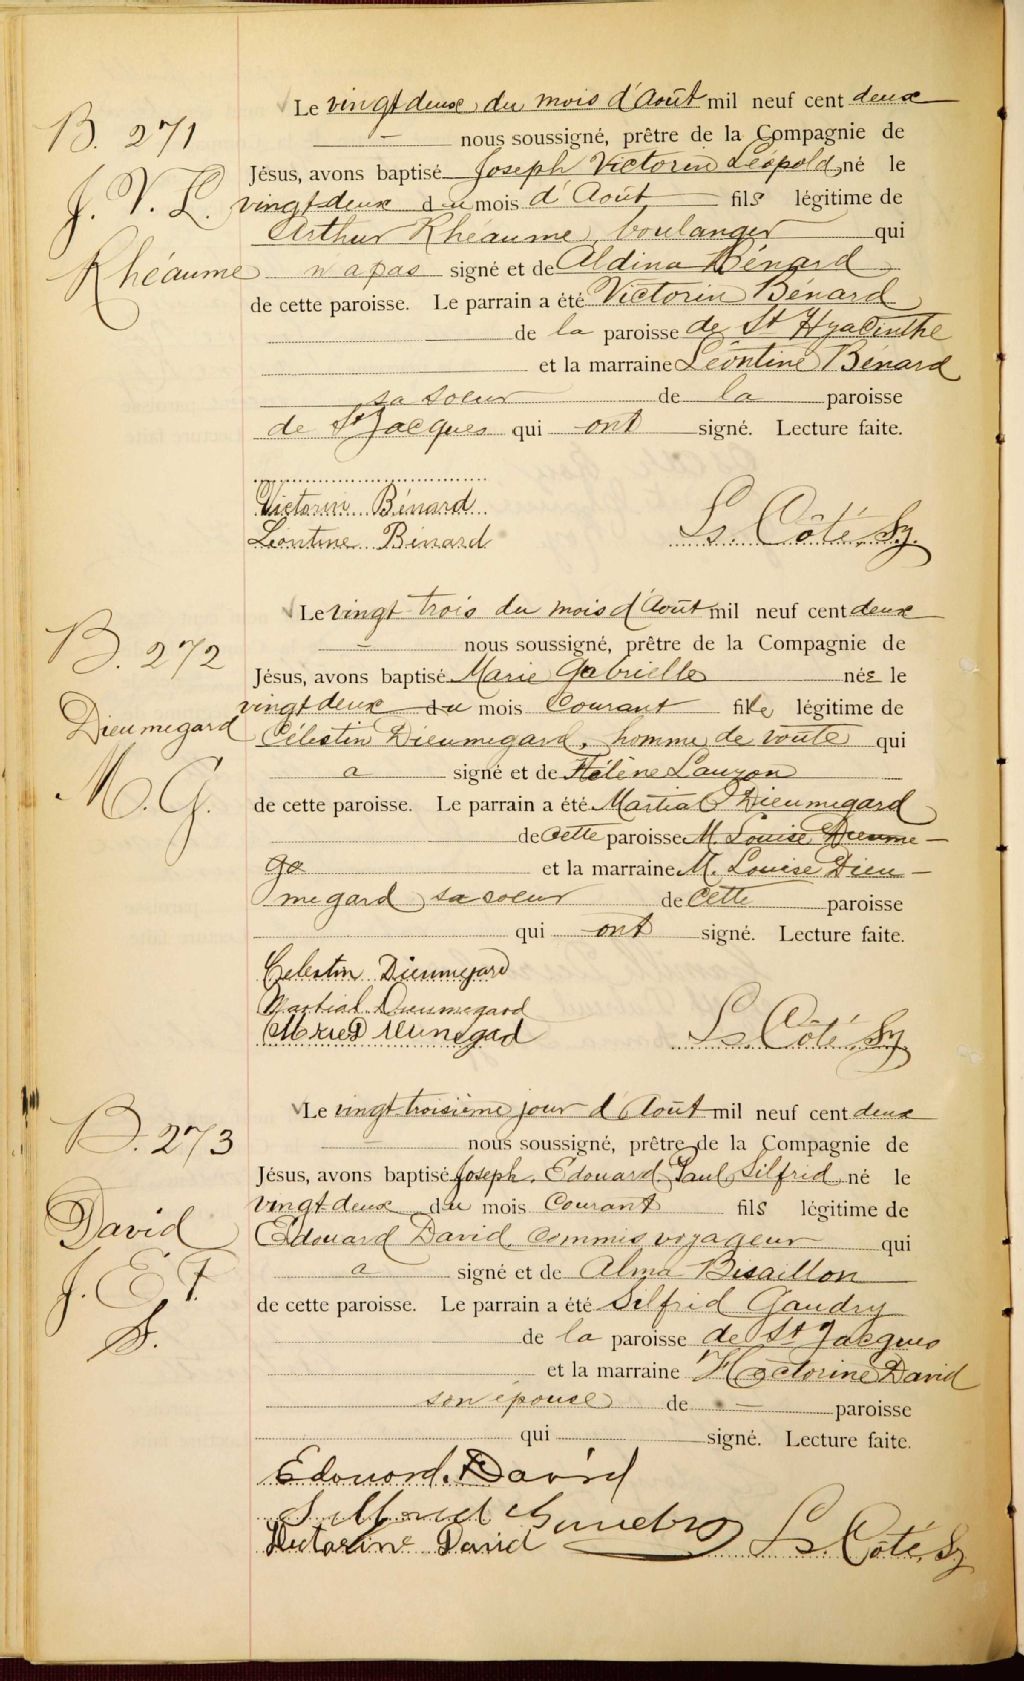 B. 271
J. V. L.
Rhéaume
Le vingt deux du mois d'Août mil neuf cent deux
— nous soussigné, prêtre de la Compagnie de
Jésus, avons baptisé Joseph Victorin Léopold, né le
vingt deux du mois d'Août fils légitime de
Arthur Rhéaume, boulanger qui
n'a pas signé et de Aldina Bénard
de cette paroisse. Le parrain a été Victorin Bénard
de la paroisse de St Hyacinthe
et la marraine Léontine Bénard
sa soeur de la paroisse
de St Jacques qui ont signé. Lecture faite.
Victorin Bénard
Léontine Bénard
Ls. Côté, Sj.
B. 272
Dieumegard
M. G.
Le vingt trois du mois d'Août mil neuf cent deux
— nous soussigné, prêtre de la Compagnie de
Jésus, avons baptisé Marie Gabrielle née le
vingt deux du mois courant fille légitime de
Célestin Dieumegard, homme de voûte qui
a signé et de Hélène Lauzon
de cette paroisse. Le parrain a été Martial Dieumegard
de cette paroisse M. Louise Dieume-
ga et la marraine M. Louise Dieu-
megard sa soeur de cette paroisse
qui ont signé. Lecture faite.
Celestin Dieumegard
Martial Dieumegard
Ls. Côté, Sj.
B. 273
David
J. E. P.
S.
Le vingt troisième jour d'Août mil neuf cent deux
— nous soussigné, prêtre de la Compagnie de
Jésus, avons baptisé Joseph, Edouard, Paul, Silfrid né le
vingt deux du mois courant fils légitime de
Edouard David, commis voyageur qui
a signé et de Alma Bisaillon
de cette paroisse. Le parrain a été Silfrid Gaudry
de la paroisse de St Jacques
et la marraine Hectorine David
son épouse de — paroisse
qui signé. Lecture faite.
Edouard David
Hectorine David
Ls. Côté, Sj